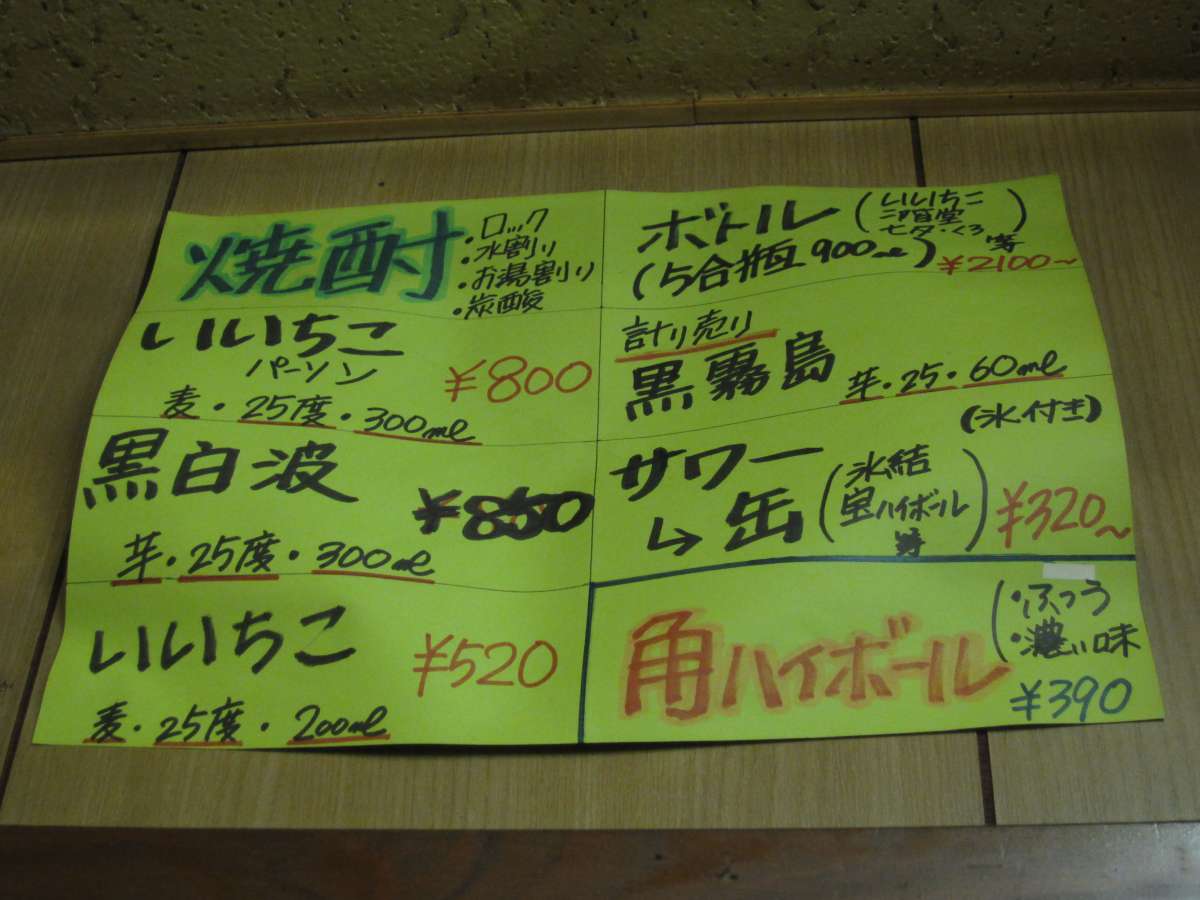 焼酎
・ロック
・水割り
・お湯割り
・炭酸
いいちこ
パーソン
¥800
麦・25度・300ml
黒白波
¥850
芋・25度・300ml
いいちこ
¥520
麦・25度・200ml
ボトル
(いいちこ
二階堂
七夕・くろ)
等
(5合瓶 900ml)
¥2100〜
計り売り
黒霧島
芋・25・60ml
(氷付き)
サワー
↳缶
(氷結
宝ハイボール
等)
¥320〜
角ハイボール
(・ふつう
・濃い味
¥390